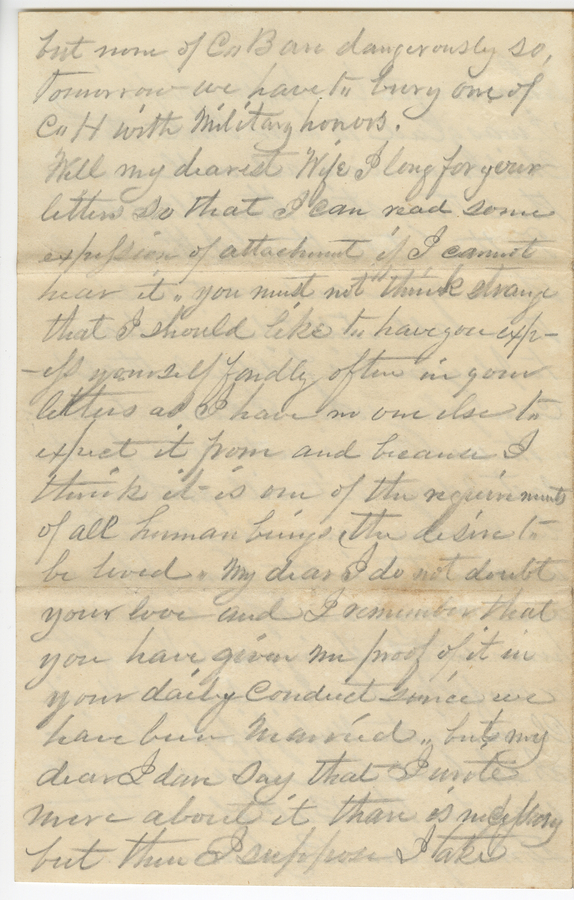 but none of Co B are dangerously so,
Tomorrow we have to bury one of
Co H with Military honors.
Well my dearest Wife I long for your
letters so that I can read some
expression of attachment if I cannot
hear it, you must not think strange
that I should like to have you exp-
-ess yourself fondly often in your
letters as I have no one else to
expect it from and because I
think it is one of the requirements
of all human beings, the desire to
be loved. My dear I do not doubt
your love and I remember that
you have given me proof of it in
your daily Conduct since we
have been Married, but my
dear I dare say that I write
more about it than is necessary
but then I suppose I take